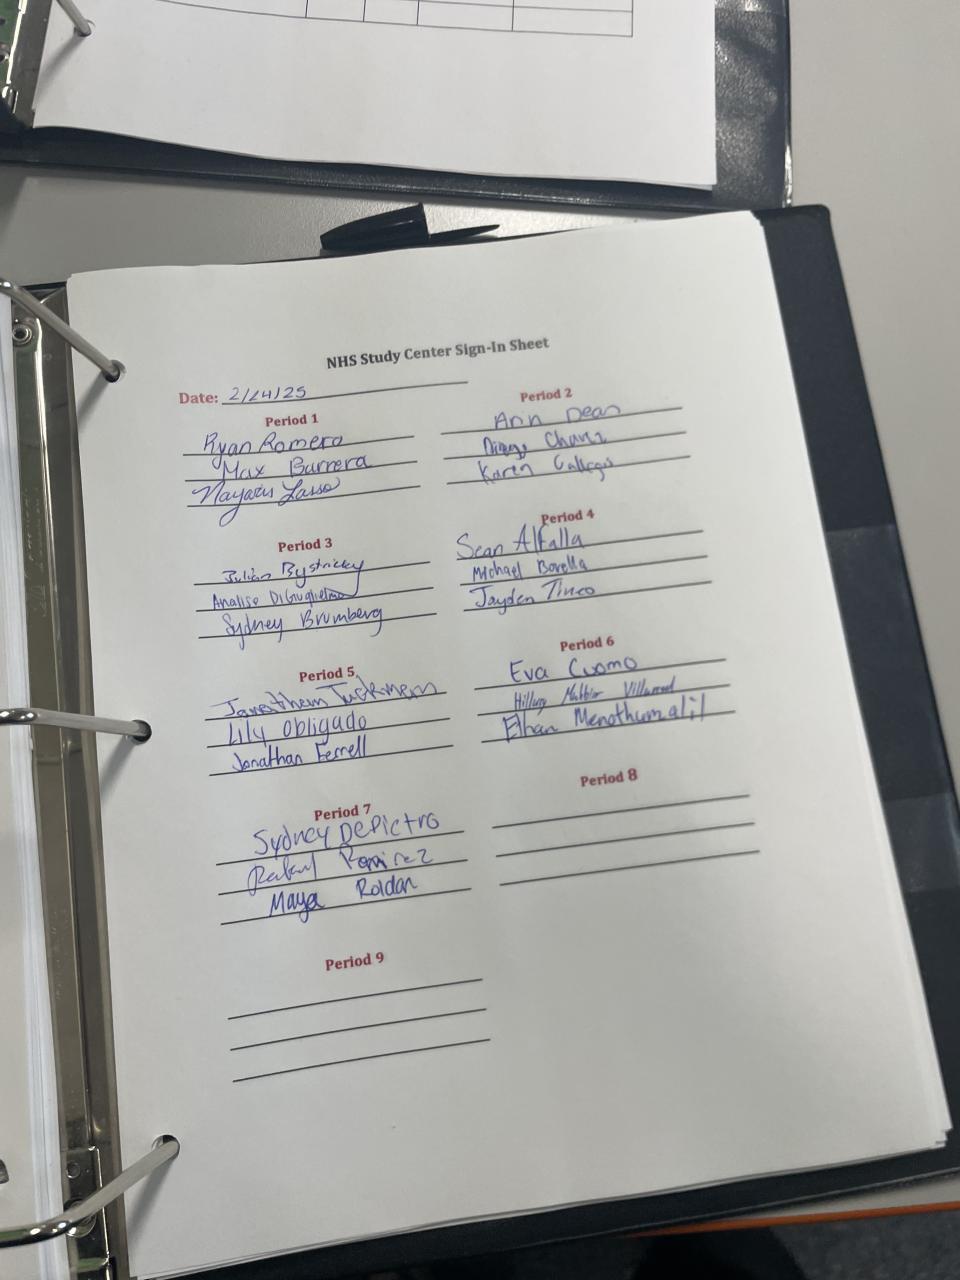 NHS Study Center Sign-In Sheet
Date: 2/24/25
Period 1
Ryan Romero
Max Barrera
Lasso
Period 2
Ann Dean
Karen Gallegos
Period 3
Julian Bystricky
Analise DiGuglielmo
Sydney Brumberg
Period 4
Sean Alfalla
Michael Borella
Jayden Tineo
Period 5
Jonathan
Lily Obligado
Jonathan Ferrell
Period 6
Eva Cuomo
Hillary
Ethan Menothumalil
Period 7
Sydney DePietro
Ramirez
Maya Roldan
Period 8
Period 9